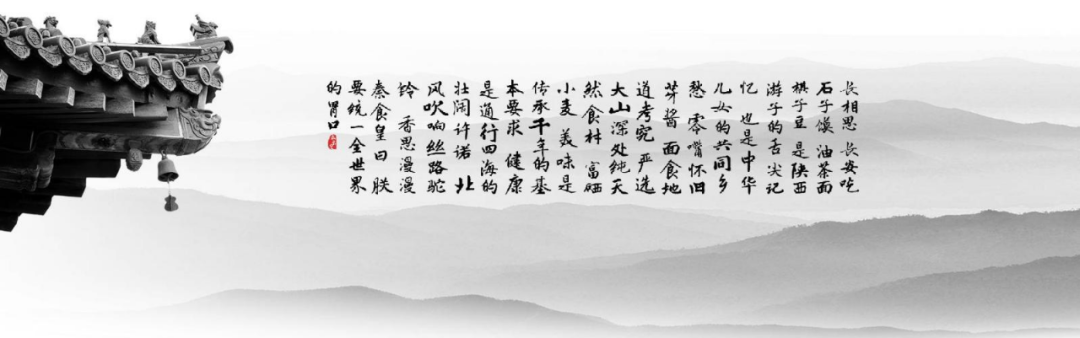 长相思 长安吃
石子馍 油茶面
棋子豆 是陕西
游子的舌尖记
忆 也是中华
儿女的共同乡
愁 零嘴怀旧
芽酱 面食地
道考究 严选
大山深处纯天
然食材 富硒
小麦 美味是
传承千年的基
本要求 健康
是通行四海的
壮阔许诺 北
风吹响丝路驼
铃 香思漫漫
秦食皇曰 朕
要统一全世界
的胃口